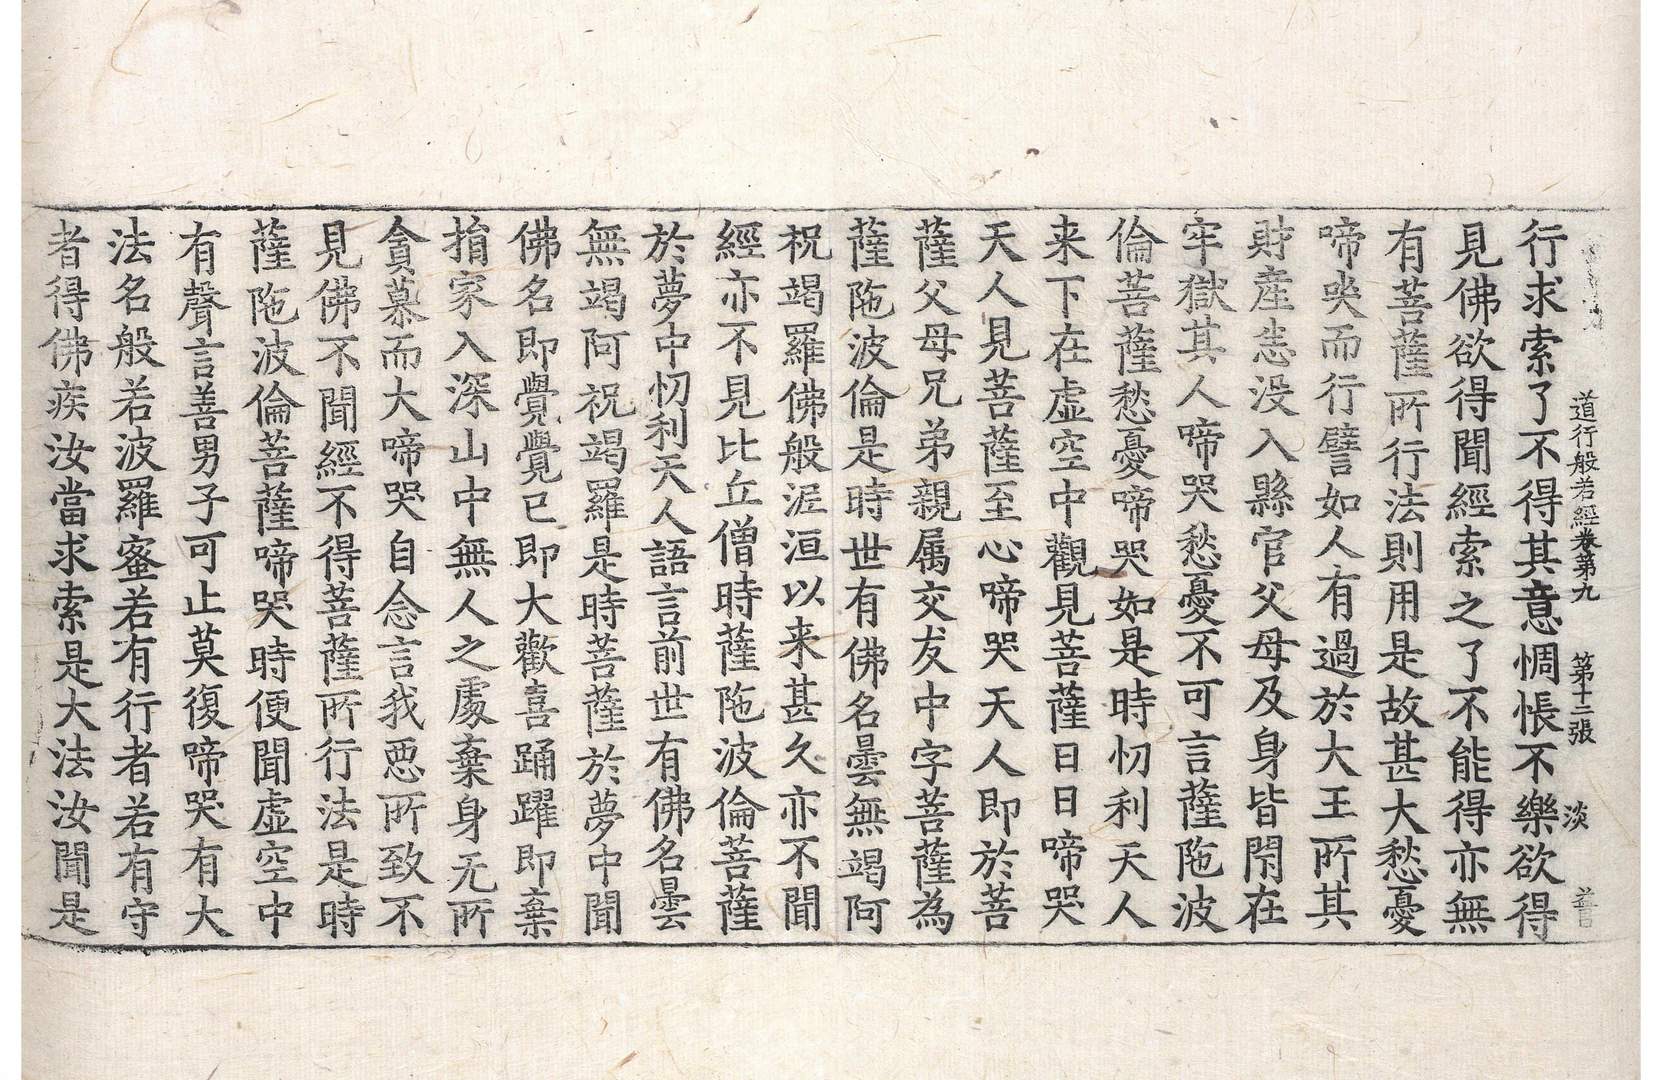 道行般若經卷第九　第十二張　淡
行求索了不得其意惆悵不樂欲得
見佛欲得聞經索之了不能得亦無
有菩薩所行法則用是故甚大愁憂
啼哭而行譬如人有過於大王所其
財產悉没入縣官父母及身皆閇在
牢獄其人啼哭愁憂不可言薩陁波
倫菩薩愁憂啼哭如是時忉利天人
来下在虛空中觀見菩薩日日啼哭
天人見菩薩至心啼哭天人即於菩
薩父母兄弟親属交友中字菩薩為
薩陁波倫是時世有佛名曇無竭阿
祝竭羅佛般泥洹以来甚久亦不聞
經亦不見比丘僧時薩陁波倫菩薩
於夢中忉利天人語言前世有佛名曇
無竭阿祝竭羅是時菩薩於夢中聞
佛名即覺覺已即大歡喜踊躍即棄
捐家入深山中無人之處棄身无所
貪慕而大啼哭自念言我惡所致不
見佛不聞經不得菩薩所行法是時
薩陁波倫菩薩啼哭時便聞虛空中
有聲言善男子可止莫復啼哭有大
法名般若波羅蜜若有行者若有守
者得佛疾汝當求索是大法汝聞是